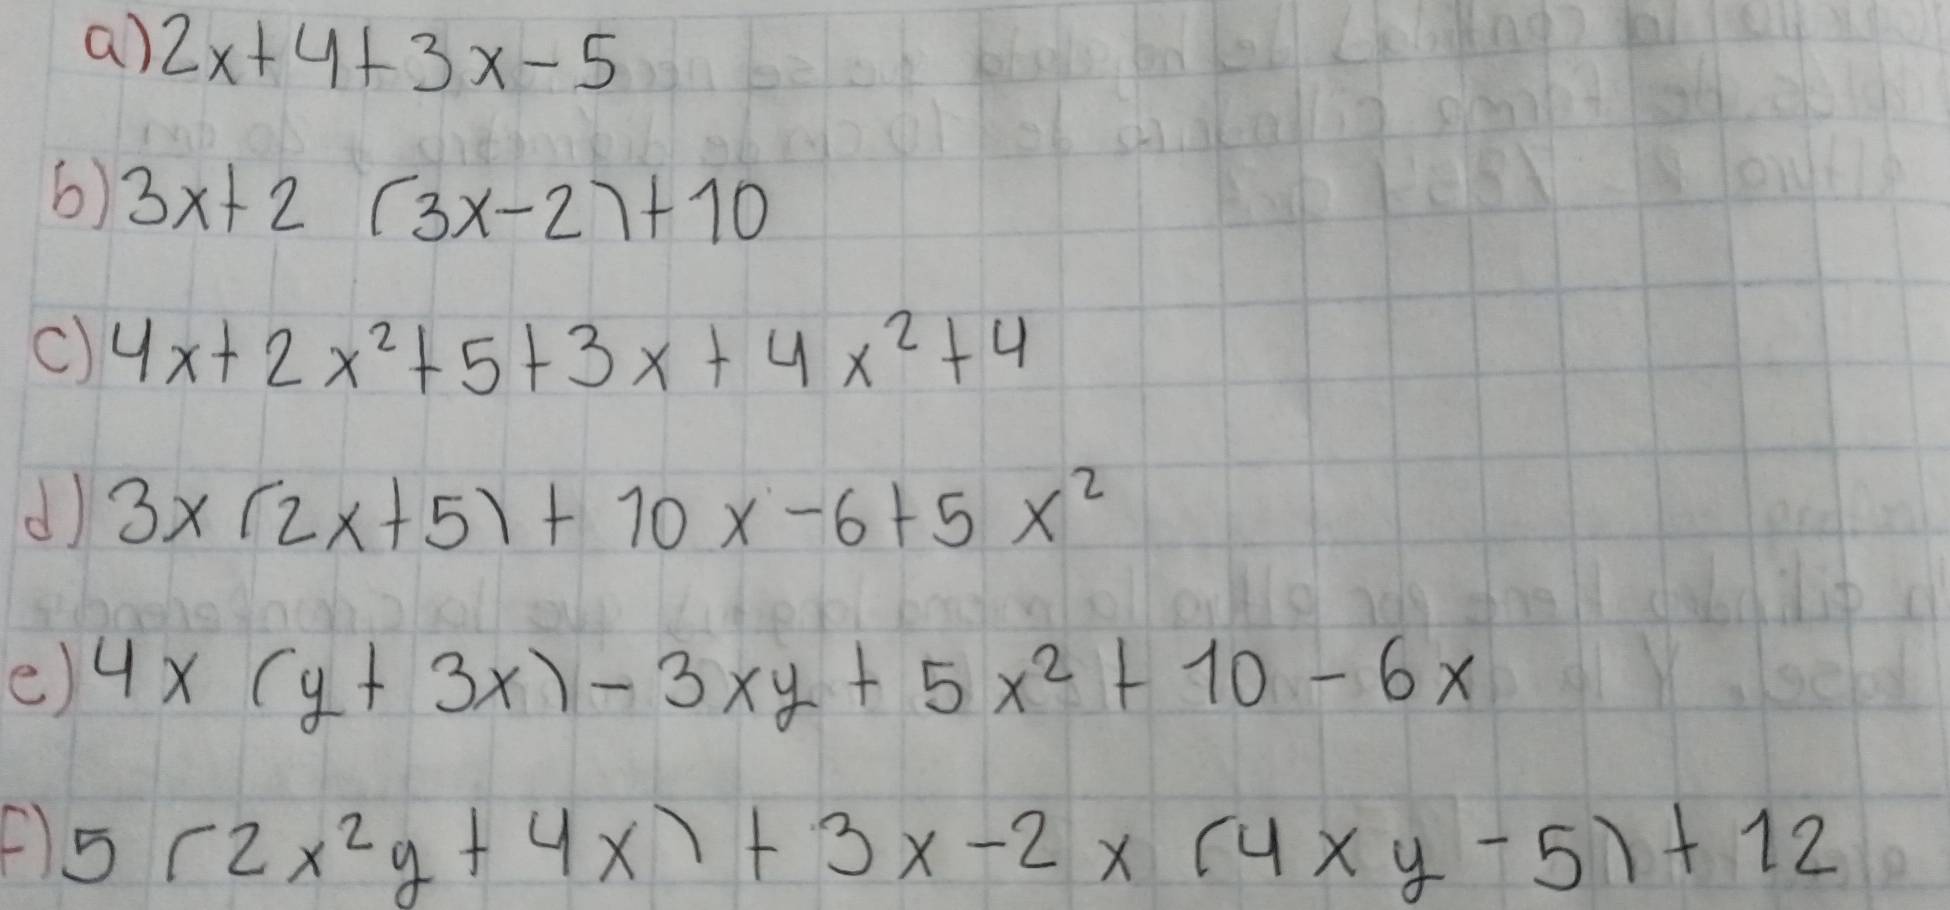 a) 2x+4+3x-5
b) 3x+2 (3x-2)+10
c) 4x+2x²+5+3x+4x²+4
d) 3x(2x+5)+10x-6+5x²
e) 4x (y+3x)-3xy+5x²+10-6x
f) 5(2x²y+4x)+3x-2x(4xy-5)+12